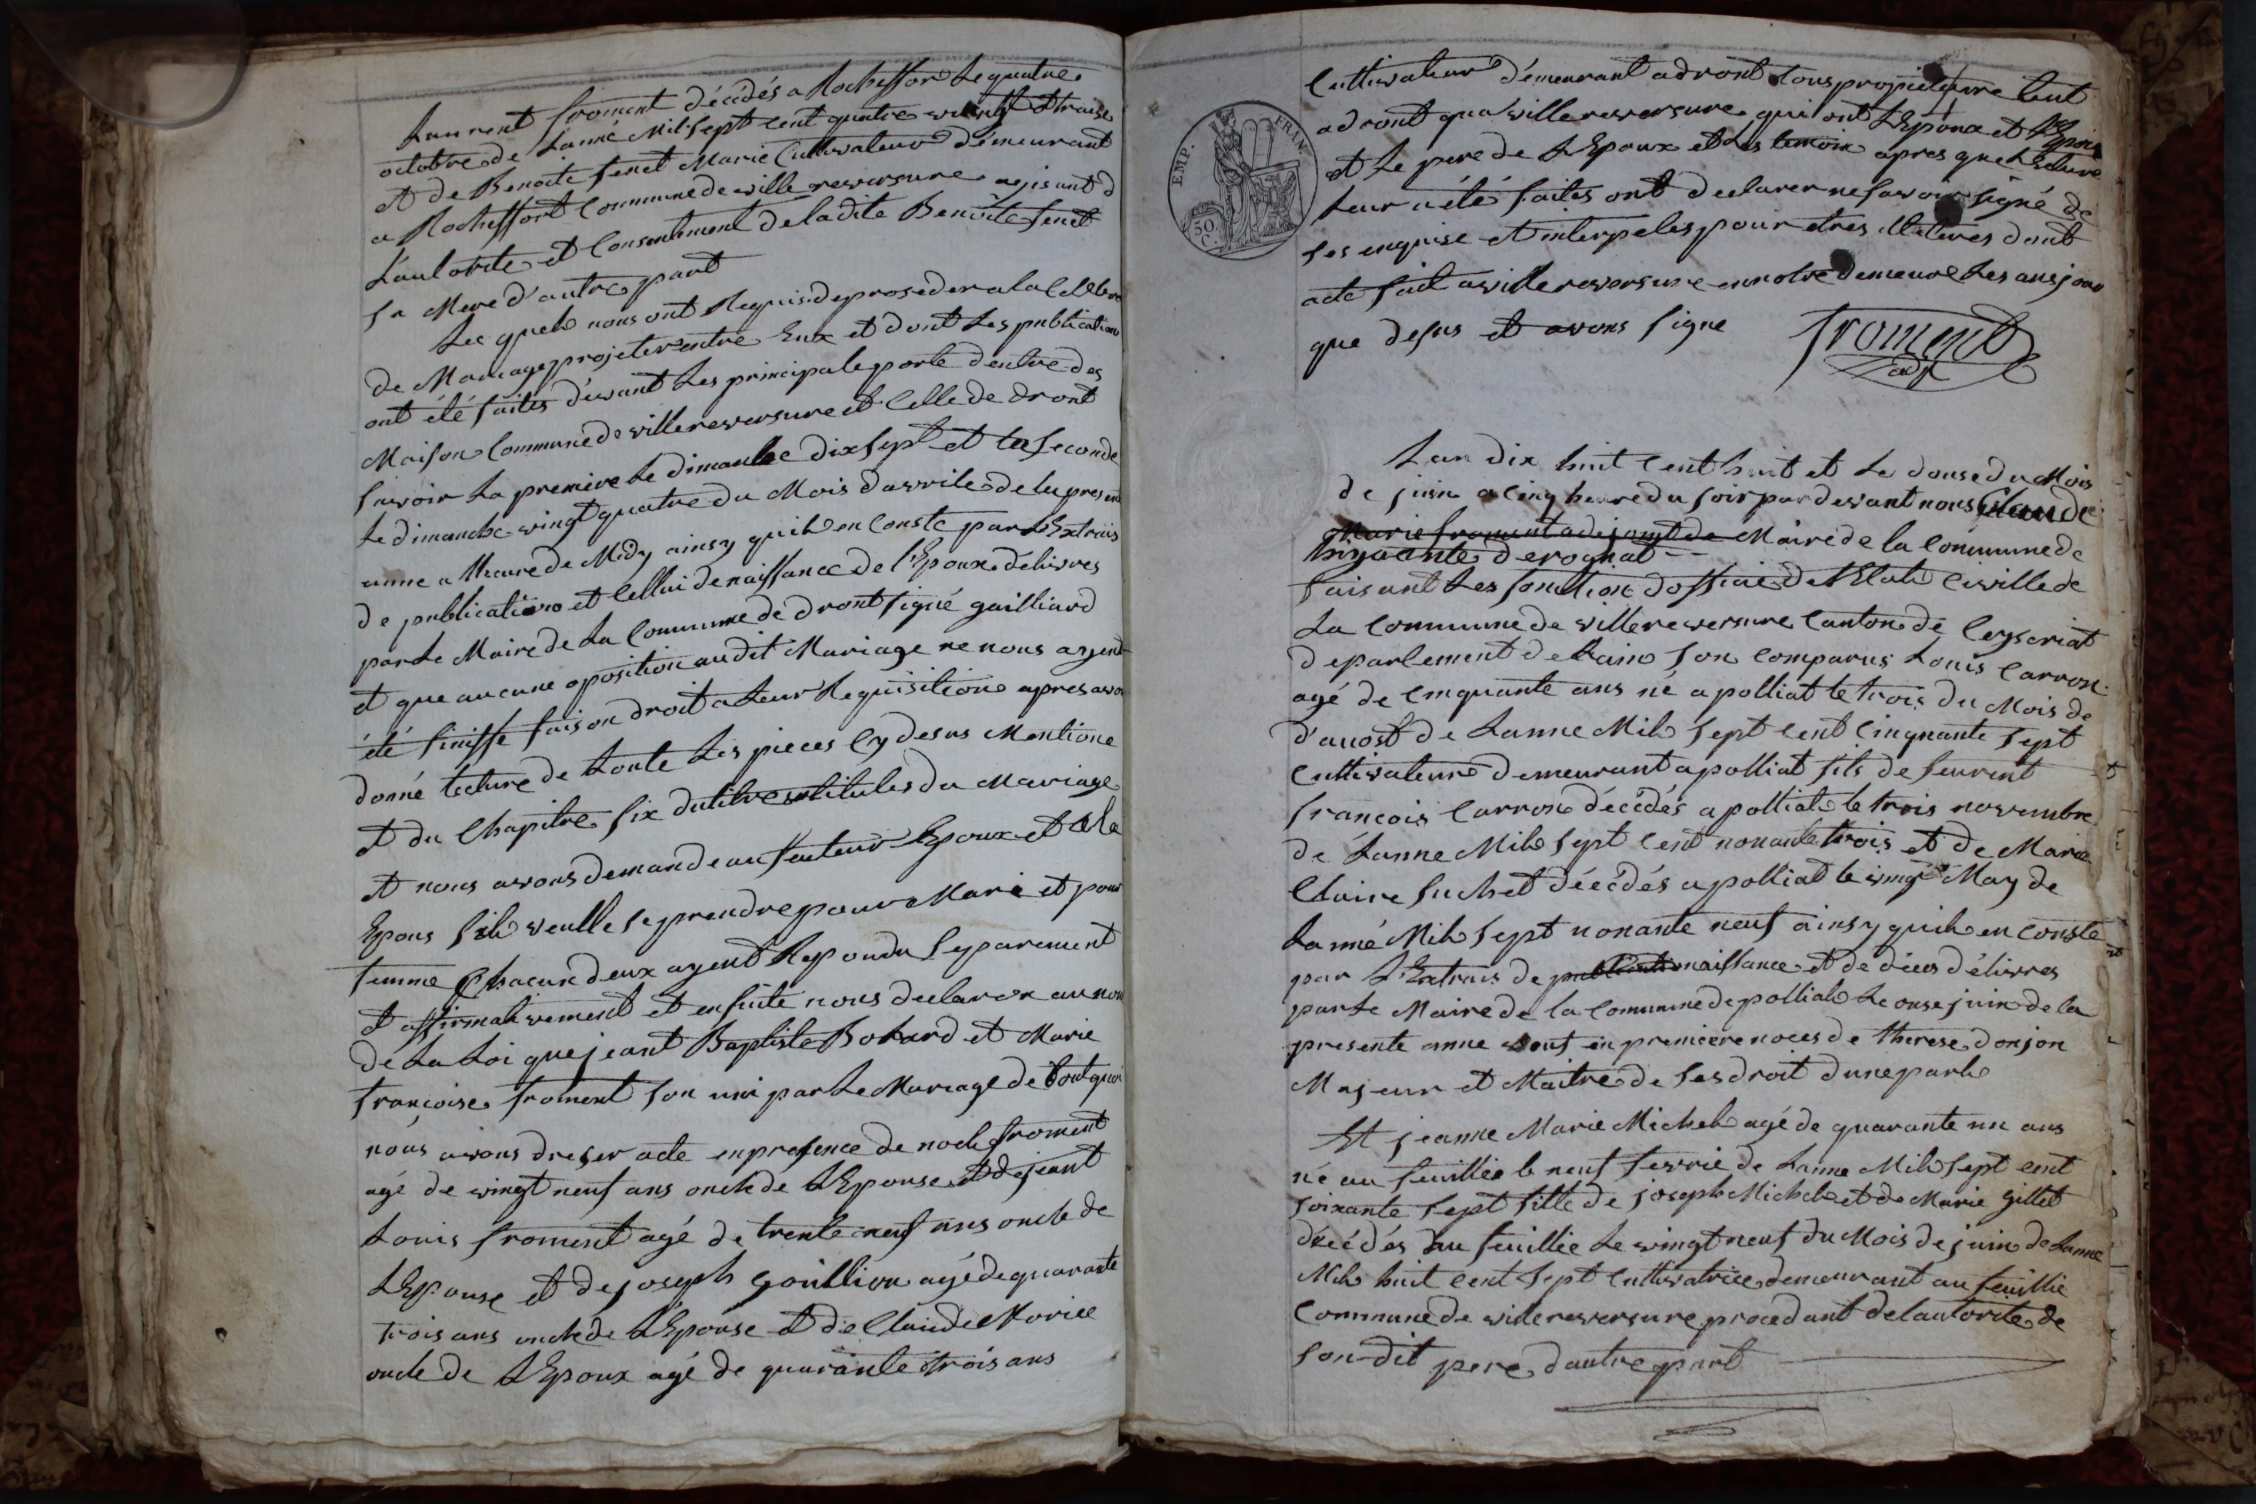 Laurent froment décédés a Rocheffor le quatre
octobre de Lanné Mil sept cent quatre vingt et traise
et de Benoite fenet Marié Cultivateur démeurant
a Rocheffort Commune de ville reversure agisant d
L'autorite et Consentement de ladite Benoite fenet
sa Mere d'autre part
Les quels nous ont Requis de proseder a la Celebra
de Mariage projeter entre Eux et dont Les publication
ont été faites dévant Les principale porte dentre des
Maison Commune de villereversure et Celle de dront
savoir La premiere Le dimanche dix sept et la seconde
Le dimanche vingt quatre du Mois davrile de la presen
anne a lheure de Midy ainsy quil en Conste par L'Extrais
de publication et Cellui de naissance de l'Epoux délivres
par Le Maire de La Commune de dront signé gailliard
et que aucune oposition audit Mariage ne nous ayent
été sinisse faison droit a Leur Requisition apres avoi
donné Lecture de toute Les pieces Cy desus Mentione
et du Chapitre six du titre intitules du Mariage
et nous avons demande au futeur Epoux et a la
Epous sil veulle se prendre pour Marie et pour
femme Chacun deux ayent Repondu separement
et affirmativement et ensuite nous declaron au nom
de La Loi que jeant Baptiste Bohard et Marie
françoise froment son uni par Le Mariage de tout quoi
nous avons dreser acte en presence de noel froment
agé de vingt neuf ans oncle de L'Epouse et de jeant
Louis froment agé de trente neuf ans oncle de
L'Epouse et de joseph gouillion agé de quarante
trois ans oncle de L'Epouse et de Claude Morice
oncle de L'Epoux agé de quarante trois ans
Cultivateur démeurant a dront tous propietere tant
a dront qua ville reversure qui ont L'Epoux et L'Epouse
et Le pere de L'Epoux et Les temoin apres que Lecture
Leur a été faites ont declarer ne savoir signé de
ses enquise et interpeles pour etres illeteres dont
acte fait a ville reversure en notre demeure Les ans jour
que desus et avons signe froment
adjt
EMP. FRAN.
50 C.
Lan dix huit Cent huit et Le douse du Mois
de juin a Cinq heure du soir par devant nous Claude
Marie froment adejoingt de Maire de la Commune de
hiyacinte derognat
faisant Les fonction doffcié de l'Etat Civille de
La Commune de villereversure Canton de Ceyseriat
departement de Lain son Comparus Louis Carron
agé de Cinquante ans né a polliat le trois du Mois de
d'auost de Lanne Mil sept Cent Cinquante sept
Cultivateur demeurant a polliat fils de feurent
francois Carron décédés a polliat le trois novembre
de Lanne Mil sept cent nonante trois et de Marie
Claire suchet décédés a polliat le vingt May de
Lanné Mil sept nonante neuf ainsy quil en Conste
par L'Extrais de publication naissance et de dices délivres
par Le Maire de la Commune de polliat Le onse juin de la
presente anne veuf en premiere noces de therese donjon
Majeur et Maitre de ses droit dune parte
Et jeanne Marie Michel agé de quarante un ans
né au feuillée le neuf fevrié de Lanne Mil sept cent
soixante sept fille de joseph Michel et de Marie gillet
décédés au feuillée Le vingt neuf du Mois de juin de Lanne
Mil huit cent sept Cultivatrice demeurant au feuillie
Commune de villereversure procedant de lautorite de
son dit pere dautre part